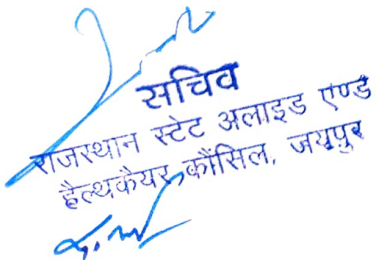 सचिव
राजस्थान स्टेट अलाइड एण्ड
हैल्थकैयर कौंसिल, जयपुर